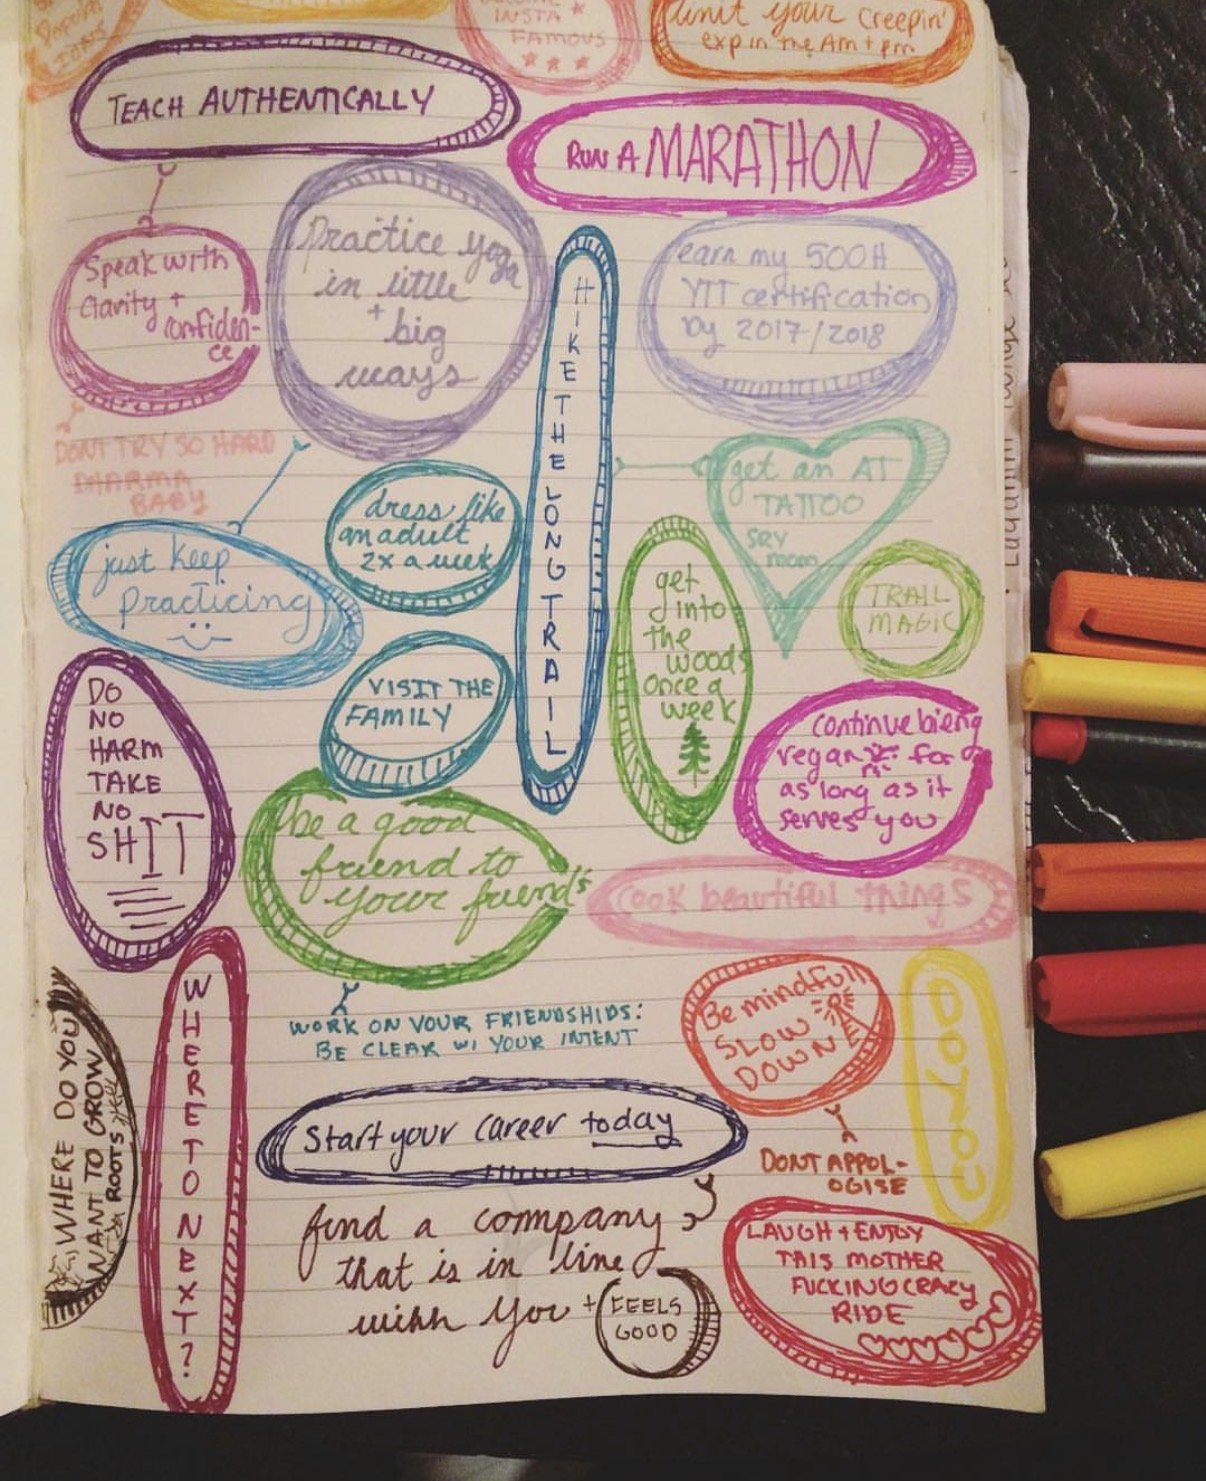 INSTA
FAMOUS
limit your creepin'
exp in the Am + pm
TEACH AUTHENTICALLY
RUN A MARATHON
Speak with
Clarity +
confiden-
ce
Practice yoga
in little
+
big
ways
HIKE THE LONG TRAIL
earn my 500H
YTT certification
by 2017/2018
DONT TRY SO HARD
DHARMA
BABY
get an AT
TATTOO
sry
mom
dress like
an adult
2x a week
just keep
practicing
get
into
the
woods
once a
week
TRAIL
MAGIC
VISIT THE
FAMILY
DO
NO
HARM
TAKE
NO
SHIT
continue bieng
vegan for
as long as it
serves you
be a good
friend to
your friends
Cook beautiful things
WHERE TO NEXT?
WHERE DO YOU
WANT TO GROW
ROOTS
WORK ON YOUR FRIENDSHIDS:
BE CLEAR W/ YOUR INTENT
Be mindful
SLOW
DOWN
DONT APPOL-
OGISE
Start your career today
find a company
that is in line
with you +
FEELS
GOOD
LAUGH + ENJOY
THIS MOTHER
FUCKING CRAZY
RIDE